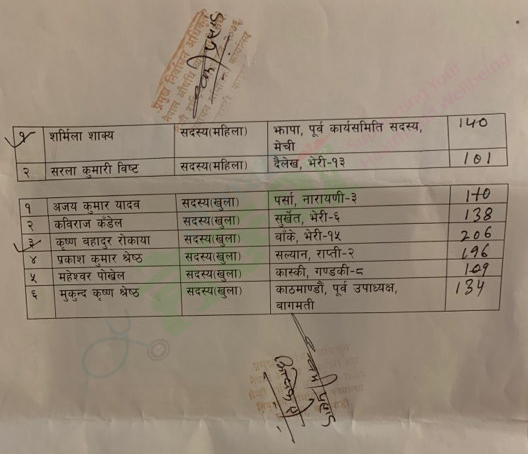 प्रमुख निर्वाचन अधिकृत
१ शर्मिला शाक्य सदस्य(महिला) झापा, पूर्व कार्यसमिति सदस्य, 140
मेची
२ सरला कुमारी विष्ट सदस्य(महिला) दैलेख, भेरी-१३ 101
१ अजय कुमार यादव सदस्य(खुला) पर्सा, नारायणी-३ 170
२ कविराज कँडेल सदस्य(खुला) सुर्खेत, भेरी-६ 138
३ कृष्ण बहादुर रोकाया सदस्य(खुला) बाँके, भेरी-१५ 206
४ प्रकाश कुमार श्रेष्ठ सदस्य(खुला) सल्यान, राप्ती-२ 196
५ महेश्वर पोखेल सदस्य(खुला) कास्की, गण्डकी-८ 109
६ मुकुन्द कृष्ण श्रेष्ठ सदस्य(खुला) काठमाण्डौ, पूर्व उपाध्यक्ष, 134
वागमती